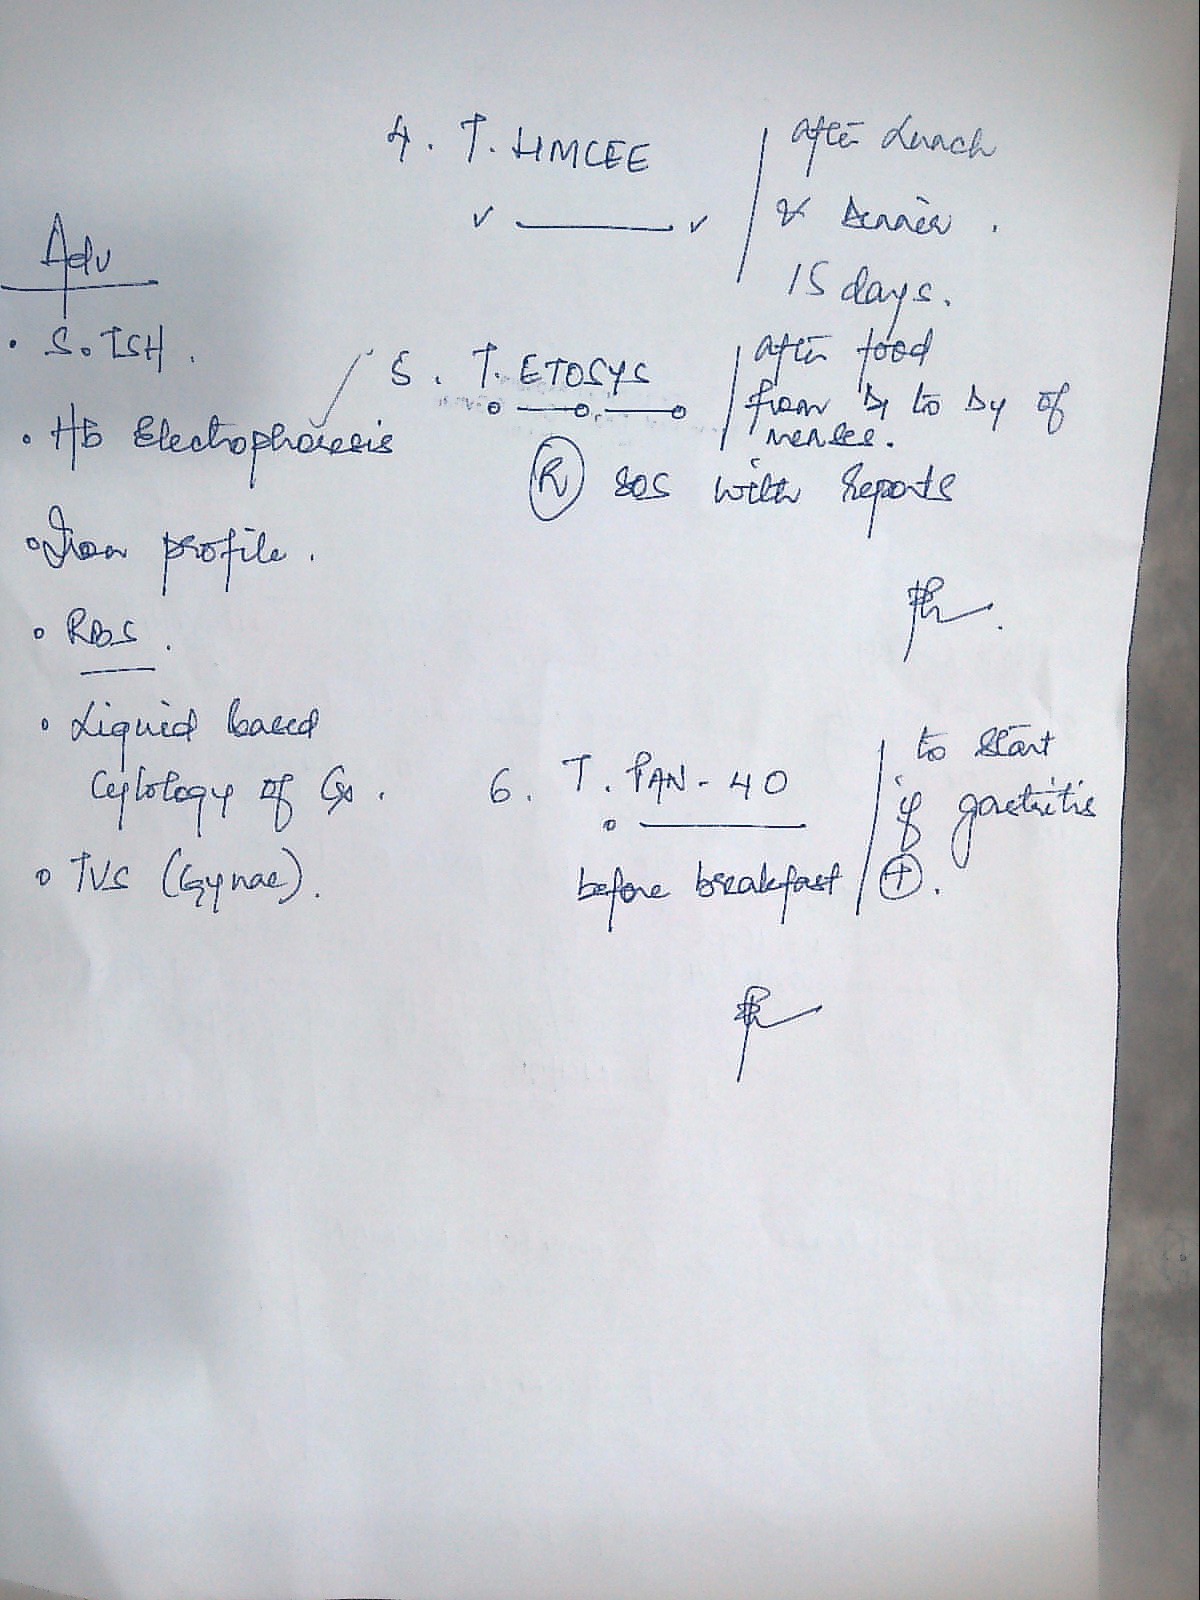 4. T. LIMCEE | after Lunch
✓ ——— ✓ | & Dinner .
15 days.
Adv
• S. TSH .
• Hb Electrophoresis
• Iron profile .
• RBS .
• Liquid based
Cytology of Cx .
• TVS (Gynae) .
5 . T. ETOSYS | after food
o—o—o | from D1 to D4 of
menses.
(R) SOS with reports
6 . T. PAN - 40 | to start
o ——— | if gastritis
before breakfast | (+) .